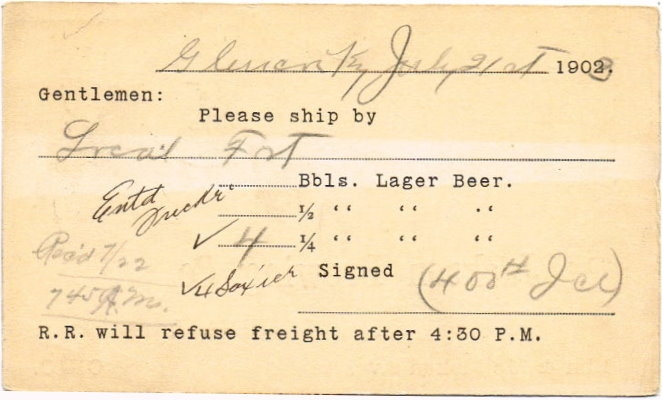 Ky July 21st 1903.
Gentlemen:
Please ship by
Local Frt
Bbls. Lager Beer.
Entd
½ “ “ “
✓ 4 ¼ “ “ “
Rec'd 7/22
✓ 4 Signed (400 # Ice)
745 A.M.
R.R. will refuse freight after 4:30 P.M.